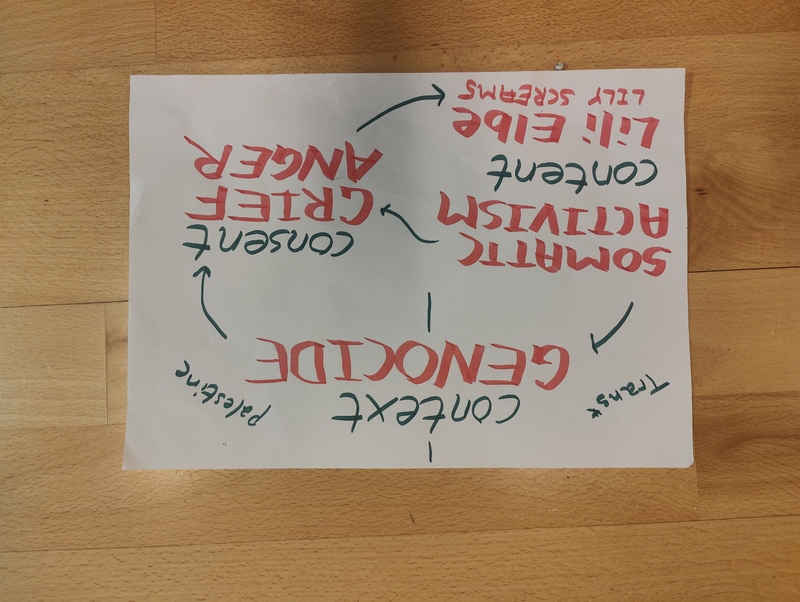 context
Trans*
palestine
GENOCIDE
SOMATIC
ACTIVISM
content
Lili Elbe
LILY SCREAMS
consent
GRIEF
ANGER